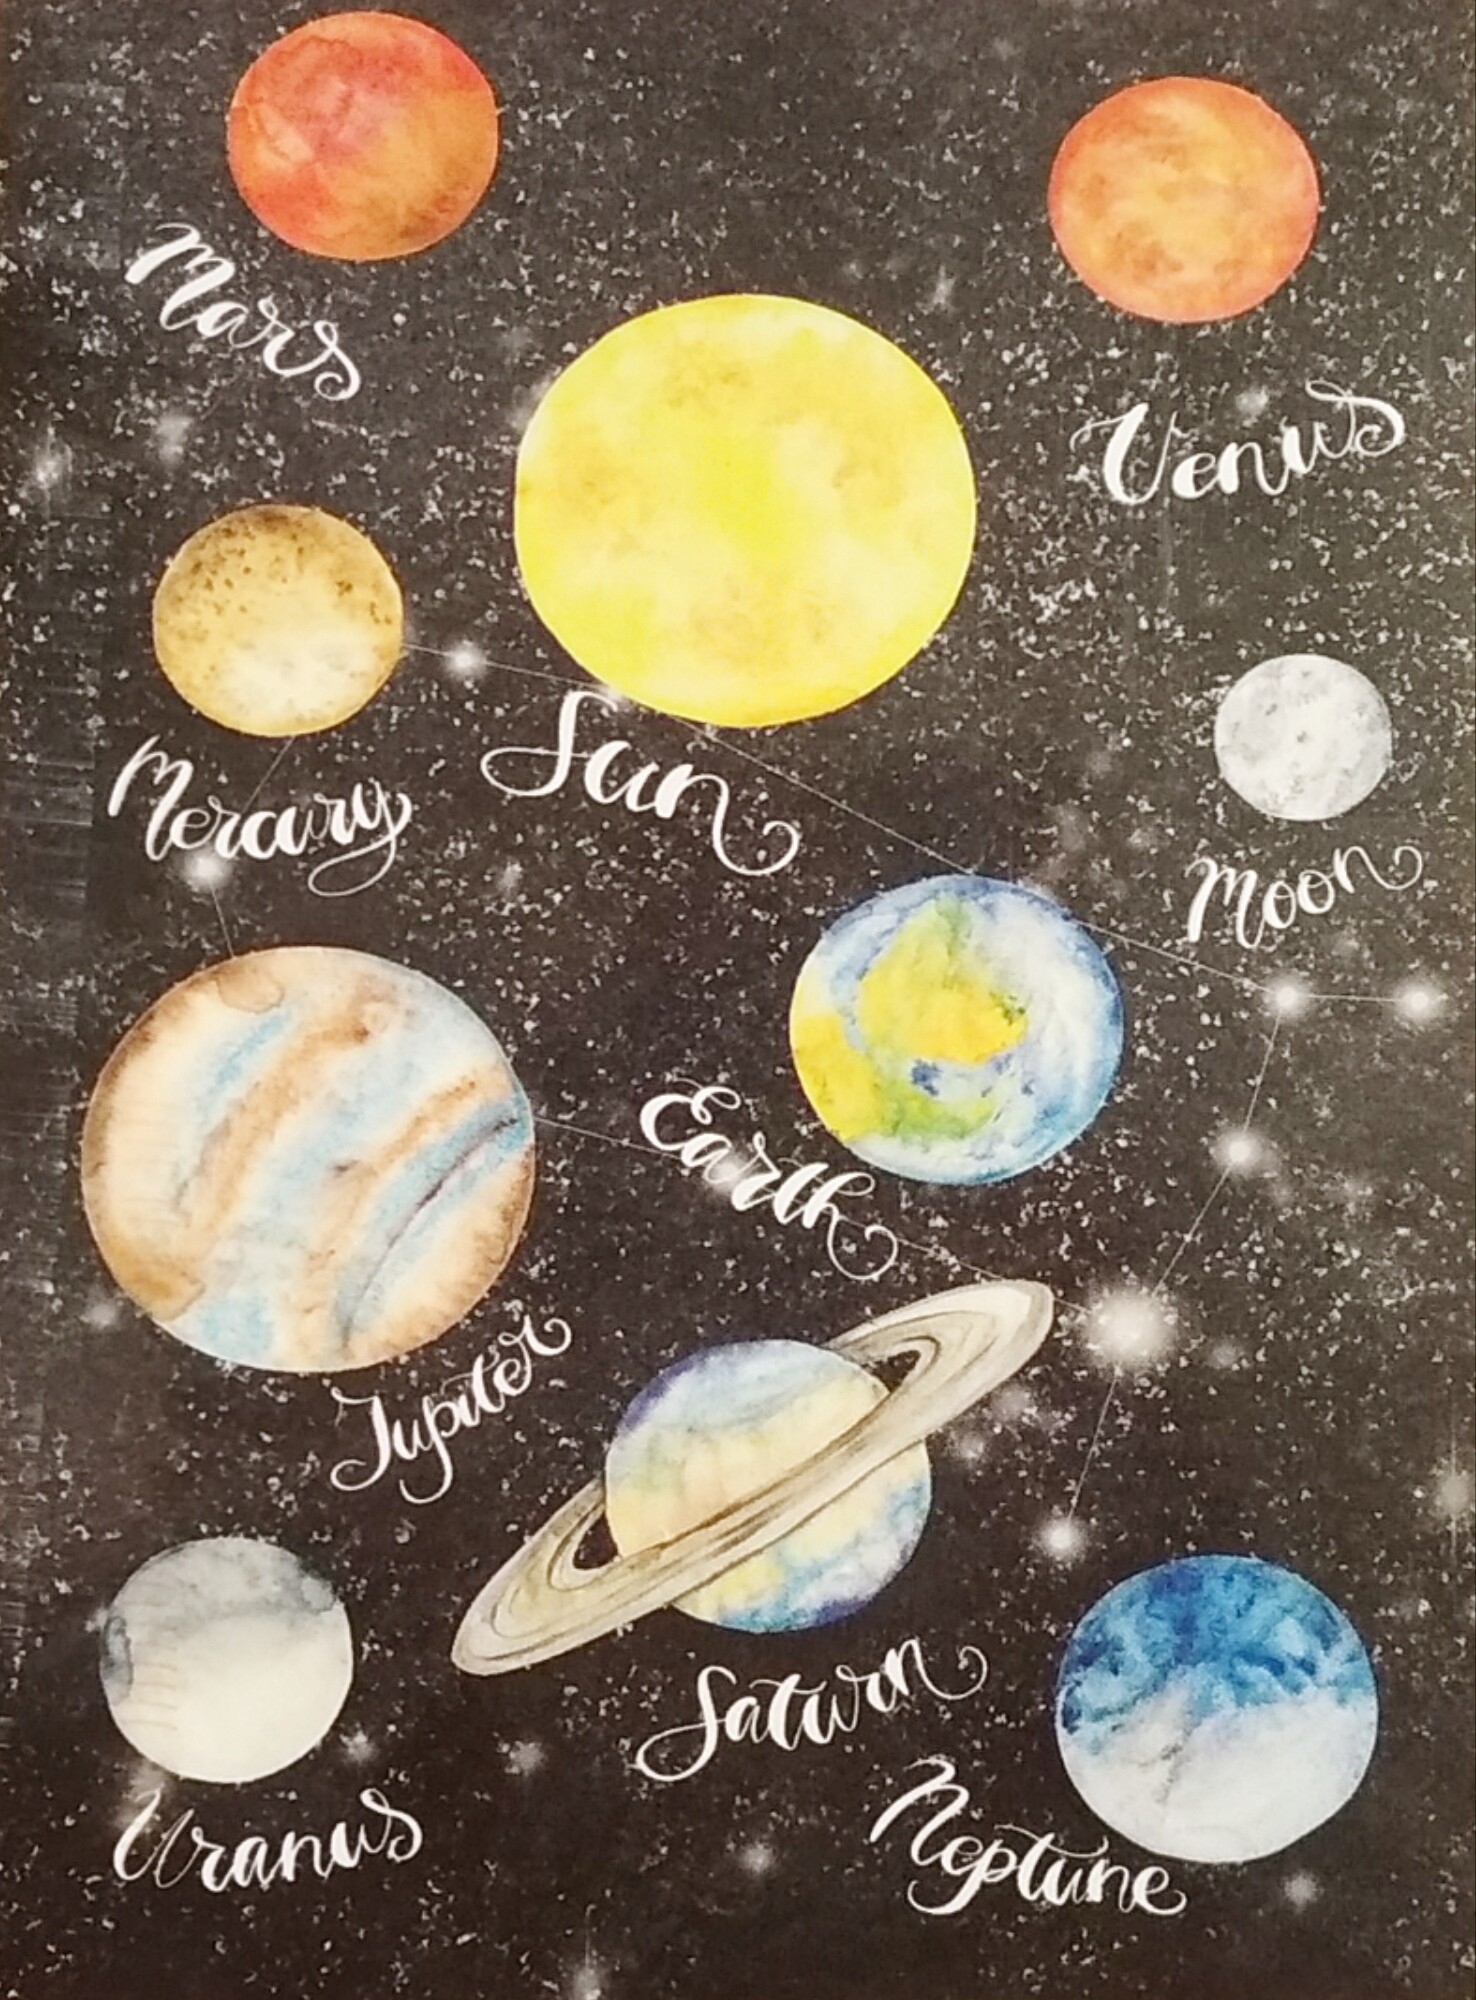 Mars
Venus
Mercury
Sun
Moon
Earth
Jupiter
Saturn
Uranus
Neptune